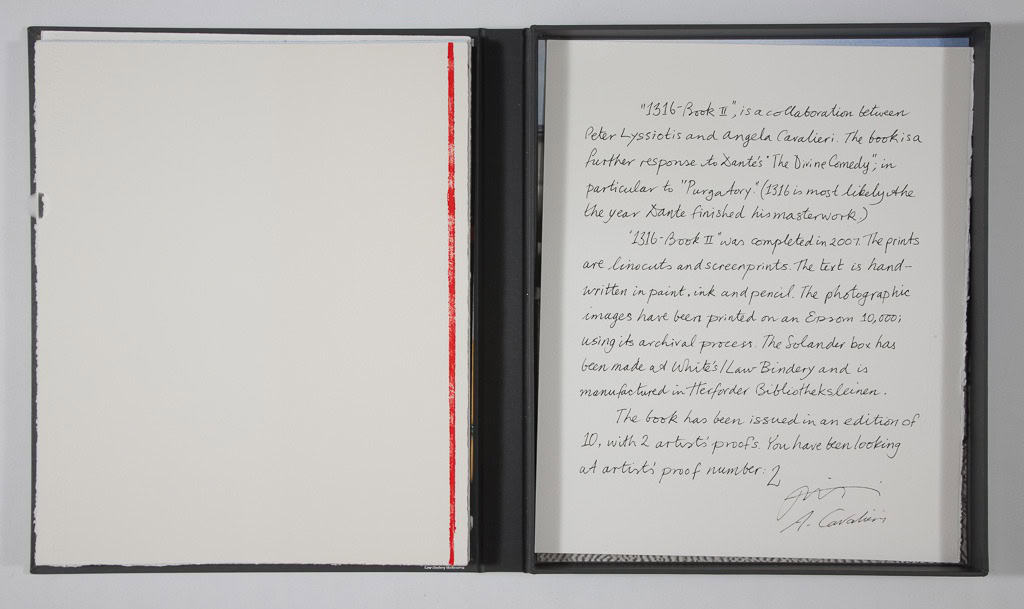 "1316-Book II", is a collaboration between
Peter Lyssiotis and Angela Cavalieri. The book is a
further response to Dante's "The Divine Comedy"; in
particular to "Purgatory." (1316 is most likely the
the year Dante finished his masterwork.)
"1316-Book II" was completed in 2007. The prints
are linocuts and screenprints. The text is hand-
written in paint, ink and pencil. The photographic
images have been printed on an Epsom 10,000;
using its archival process. The Solander box has
been made at White's/Law Bindery and is
manufactured in Herforder Bibliotheksleinen.
The book has been issued in an edition of
10, with 2 artists' proofs. You have been looking
at artist's proof number: 2
A. Cavalieri